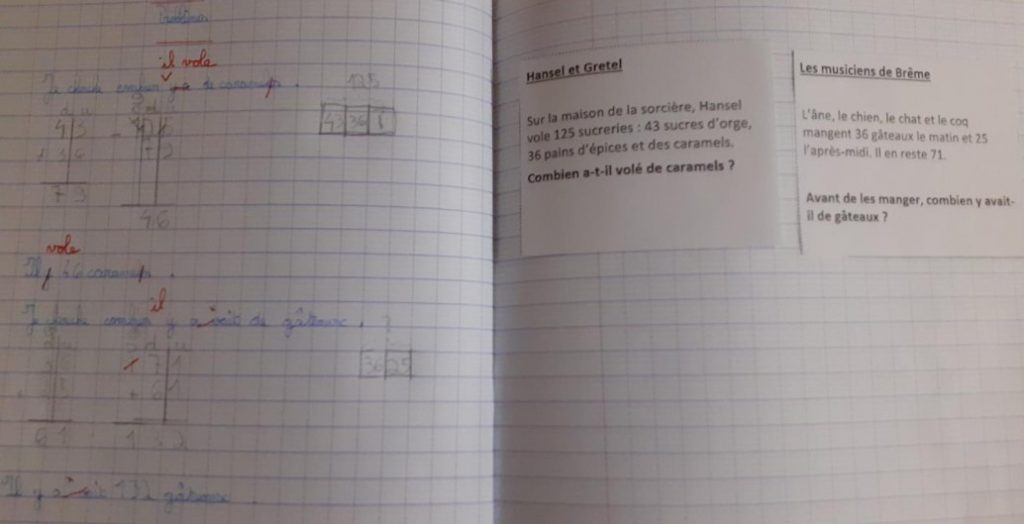 Problèmes
il vole
Je cherche combien y a de caramels.
d u c d u
4 3 - 1 2 5
+ 3 6 7 9
7 9
4 6
125
43 36 ?
vole
Il y 46 caramels.
il
Je cherche combien y avait de gâteaux.
d u c d u
3 6 7 1
+ 2 5 + 6 1
6 1 1 3 2
?
36 25
Il y avait 132 gâteaux.
Hansel et Gretel
Sur la maison de la sorcière, Hansel
vole 125 sucreries : 43 sucres d'orge,
36 pains d'épices et des caramels.
Combien a-t-il volé de caramels ?
Les musiciens de Brême
L'âne, le chien, le chat et le coq
mangent 36 gâteaux le matin et 25
l'après-midi. Il en reste 71.
Avant de les manger, combien y avait-
il de gâteaux ?